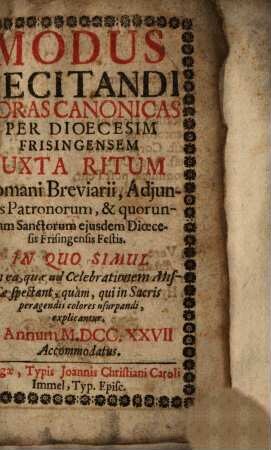 MODUS
ECITANDI
ORAS CANONICAS
PER DIOECESIM
FRISINGENSEM
UXTA RITUM
omani Breviarii, Adjun-
s Patronorum, & quorun-
am Sanctorum ejusdem Diœce-
sis Frisingensis Festis.
IN QUO SIMUL
ea, quæ ad Celebrationem Mis-
æ spectant, quàm, qui in Sacris
peragendis colores usurpandi,
explicantur.
Annum M.DCC.XXVII
Accommodatus.
gæ, Typis Joannis Christiani Caroli
Immel, Typ. Episc.